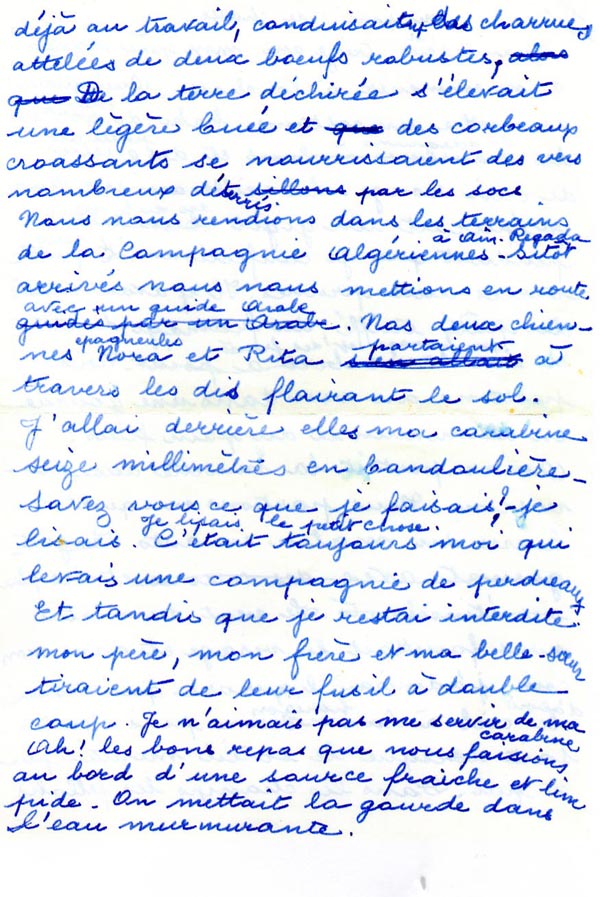 déjà au travail, conduisait des charrues
attelées de deux bœufs robustes, alors
que De la terre déchirée s'élevait
une légère buée et que des corbeaux
croassants se nourrissaient des vers
nombreux déterris sillons par les socs
Nous nous rendions dans les terrains
à Aïn-Regada
de la Compagnie Algériennes - Sitôt
arrivés nous nous mettions en route
avec un guide Arabe
guidés par un Arabe. Nos deux chien-
epagneules partaient
nes Nora et Rita s'en allait à
travers les dis flairant le sol.
J'allai derrière elles ma carabine
seize millimètrés en bandoulière -
Savez vous ce que je faisais? - je
Je lisais le petit chose.
lisais. C'était toujours moi, qui
levais une compagnie de perdreaux
Et tandis que je restai interdite
mon père, mon frère et ma belle-sœur
tiraient de leur fusil à double
coup. Je n'aimais pas me servir de ma
carabine
Ah! les bons repas que nous faisions
au bord d'une source fraîche et lim
pide - On mettait la gourde dans
l'eau murmurante.